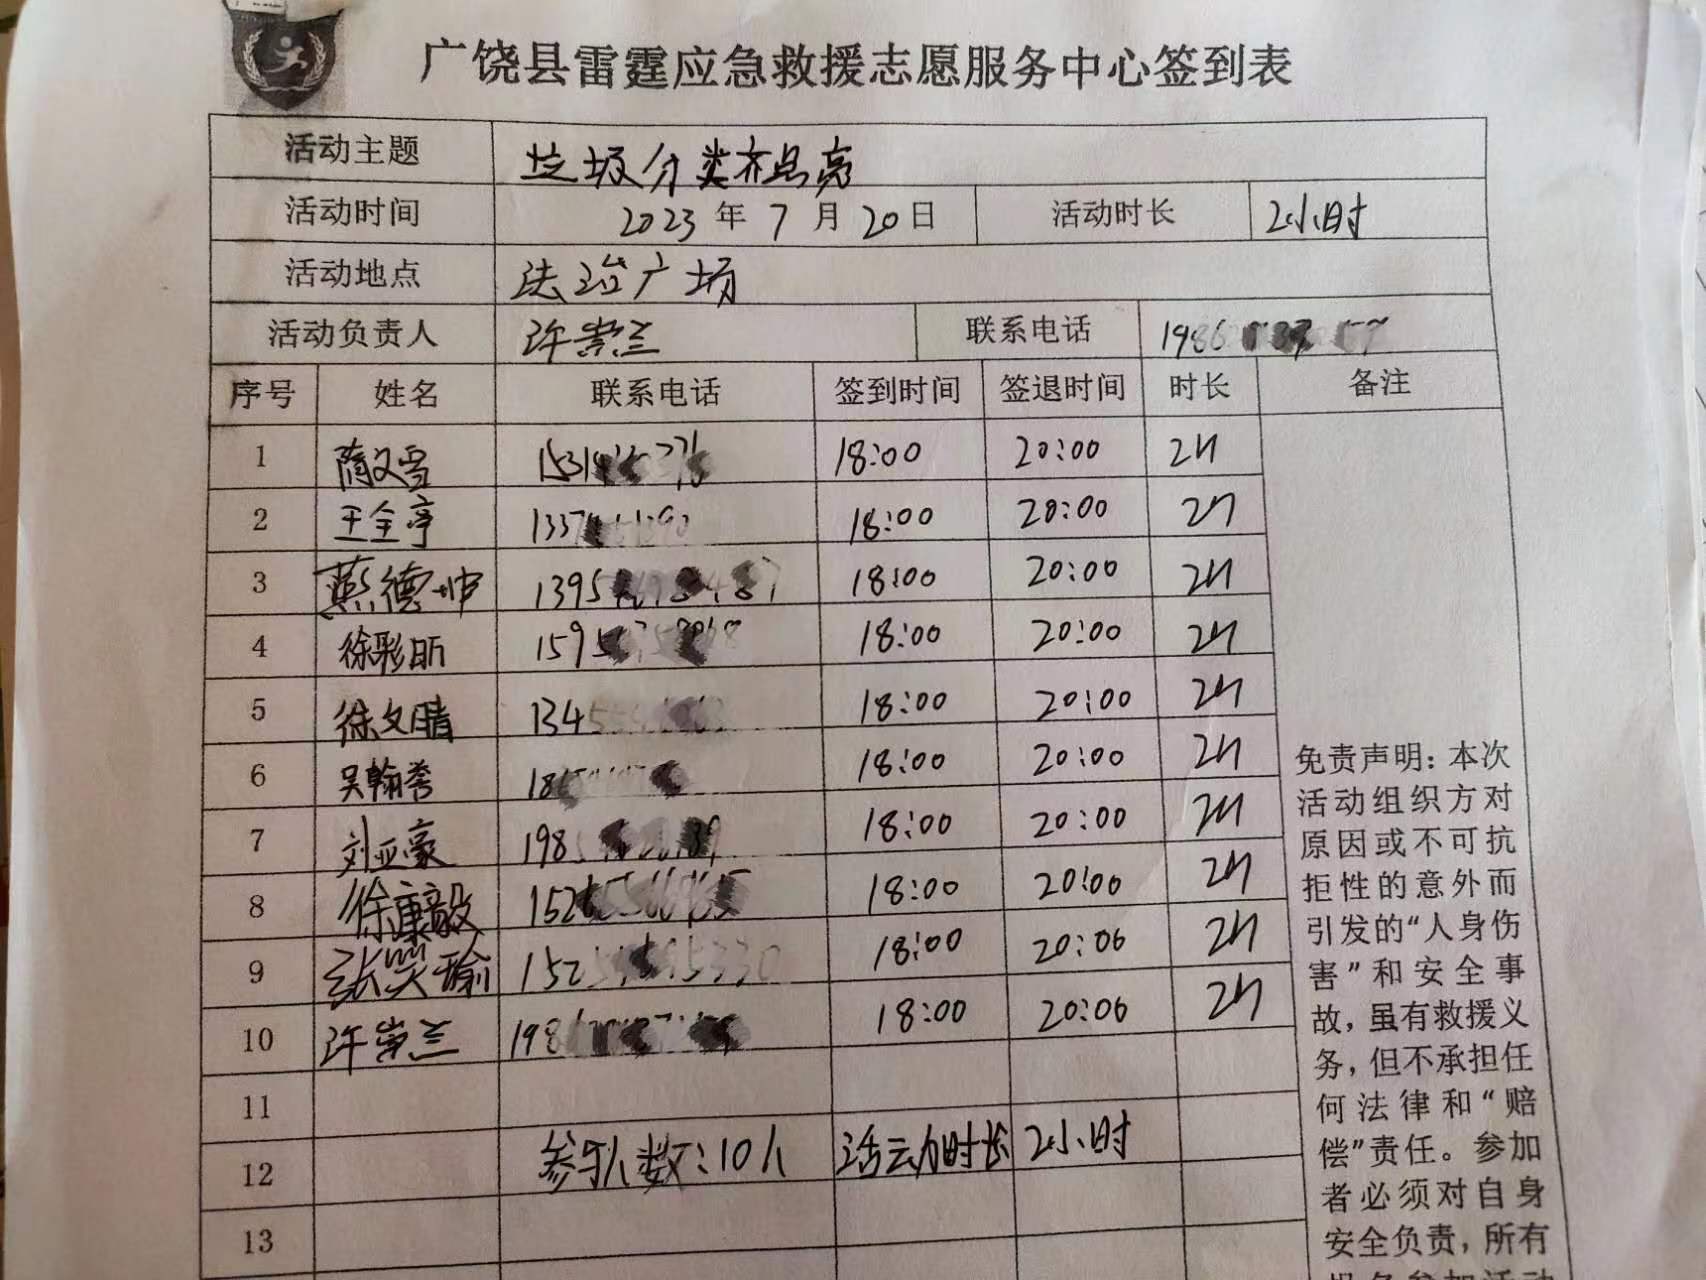 广饶县雷霆应急救援志愿服务中心签到表
活动主题 垃圾分类齐点亮
活动时间 2023年7月20日 活动时长 2小时
活动地点 法治广场
活动负责人 许崇兰 联系电话 1986
序号 姓名 联系电话 签到时间 签退时间 时长 备注
1 隋文雪 1531 18:00 20:00 2H
2 王全亭 1337 18:00 20:00 2H
3 燕德坤 1395 18:00 20:00 2H
4 徐彩昕 1595 18:00 20:00 2H
5 徐文晴 1345 18:00 20:00 2H
6 吴翰秀 18 18:00 20:00 2H
7 刘亚豪 198 18:00 20:00 2H
8 徐康毅 152 18:00 20:00 2H
9 张笑瑜 152 18:00 20:00 2H
10 许崇兰 198 18:00 20:00 2H
11
12 参与人数:10人 活动时长 2小时
13
免责声明:本次
活动组织方对
原因或不可抗
拒性的意外而
引发的“人身伤
害”和安全事
故,虽有救援义
务,但不承担任
何法律和“赔
偿”责任。参加
者必须对自身
安全负责,所有